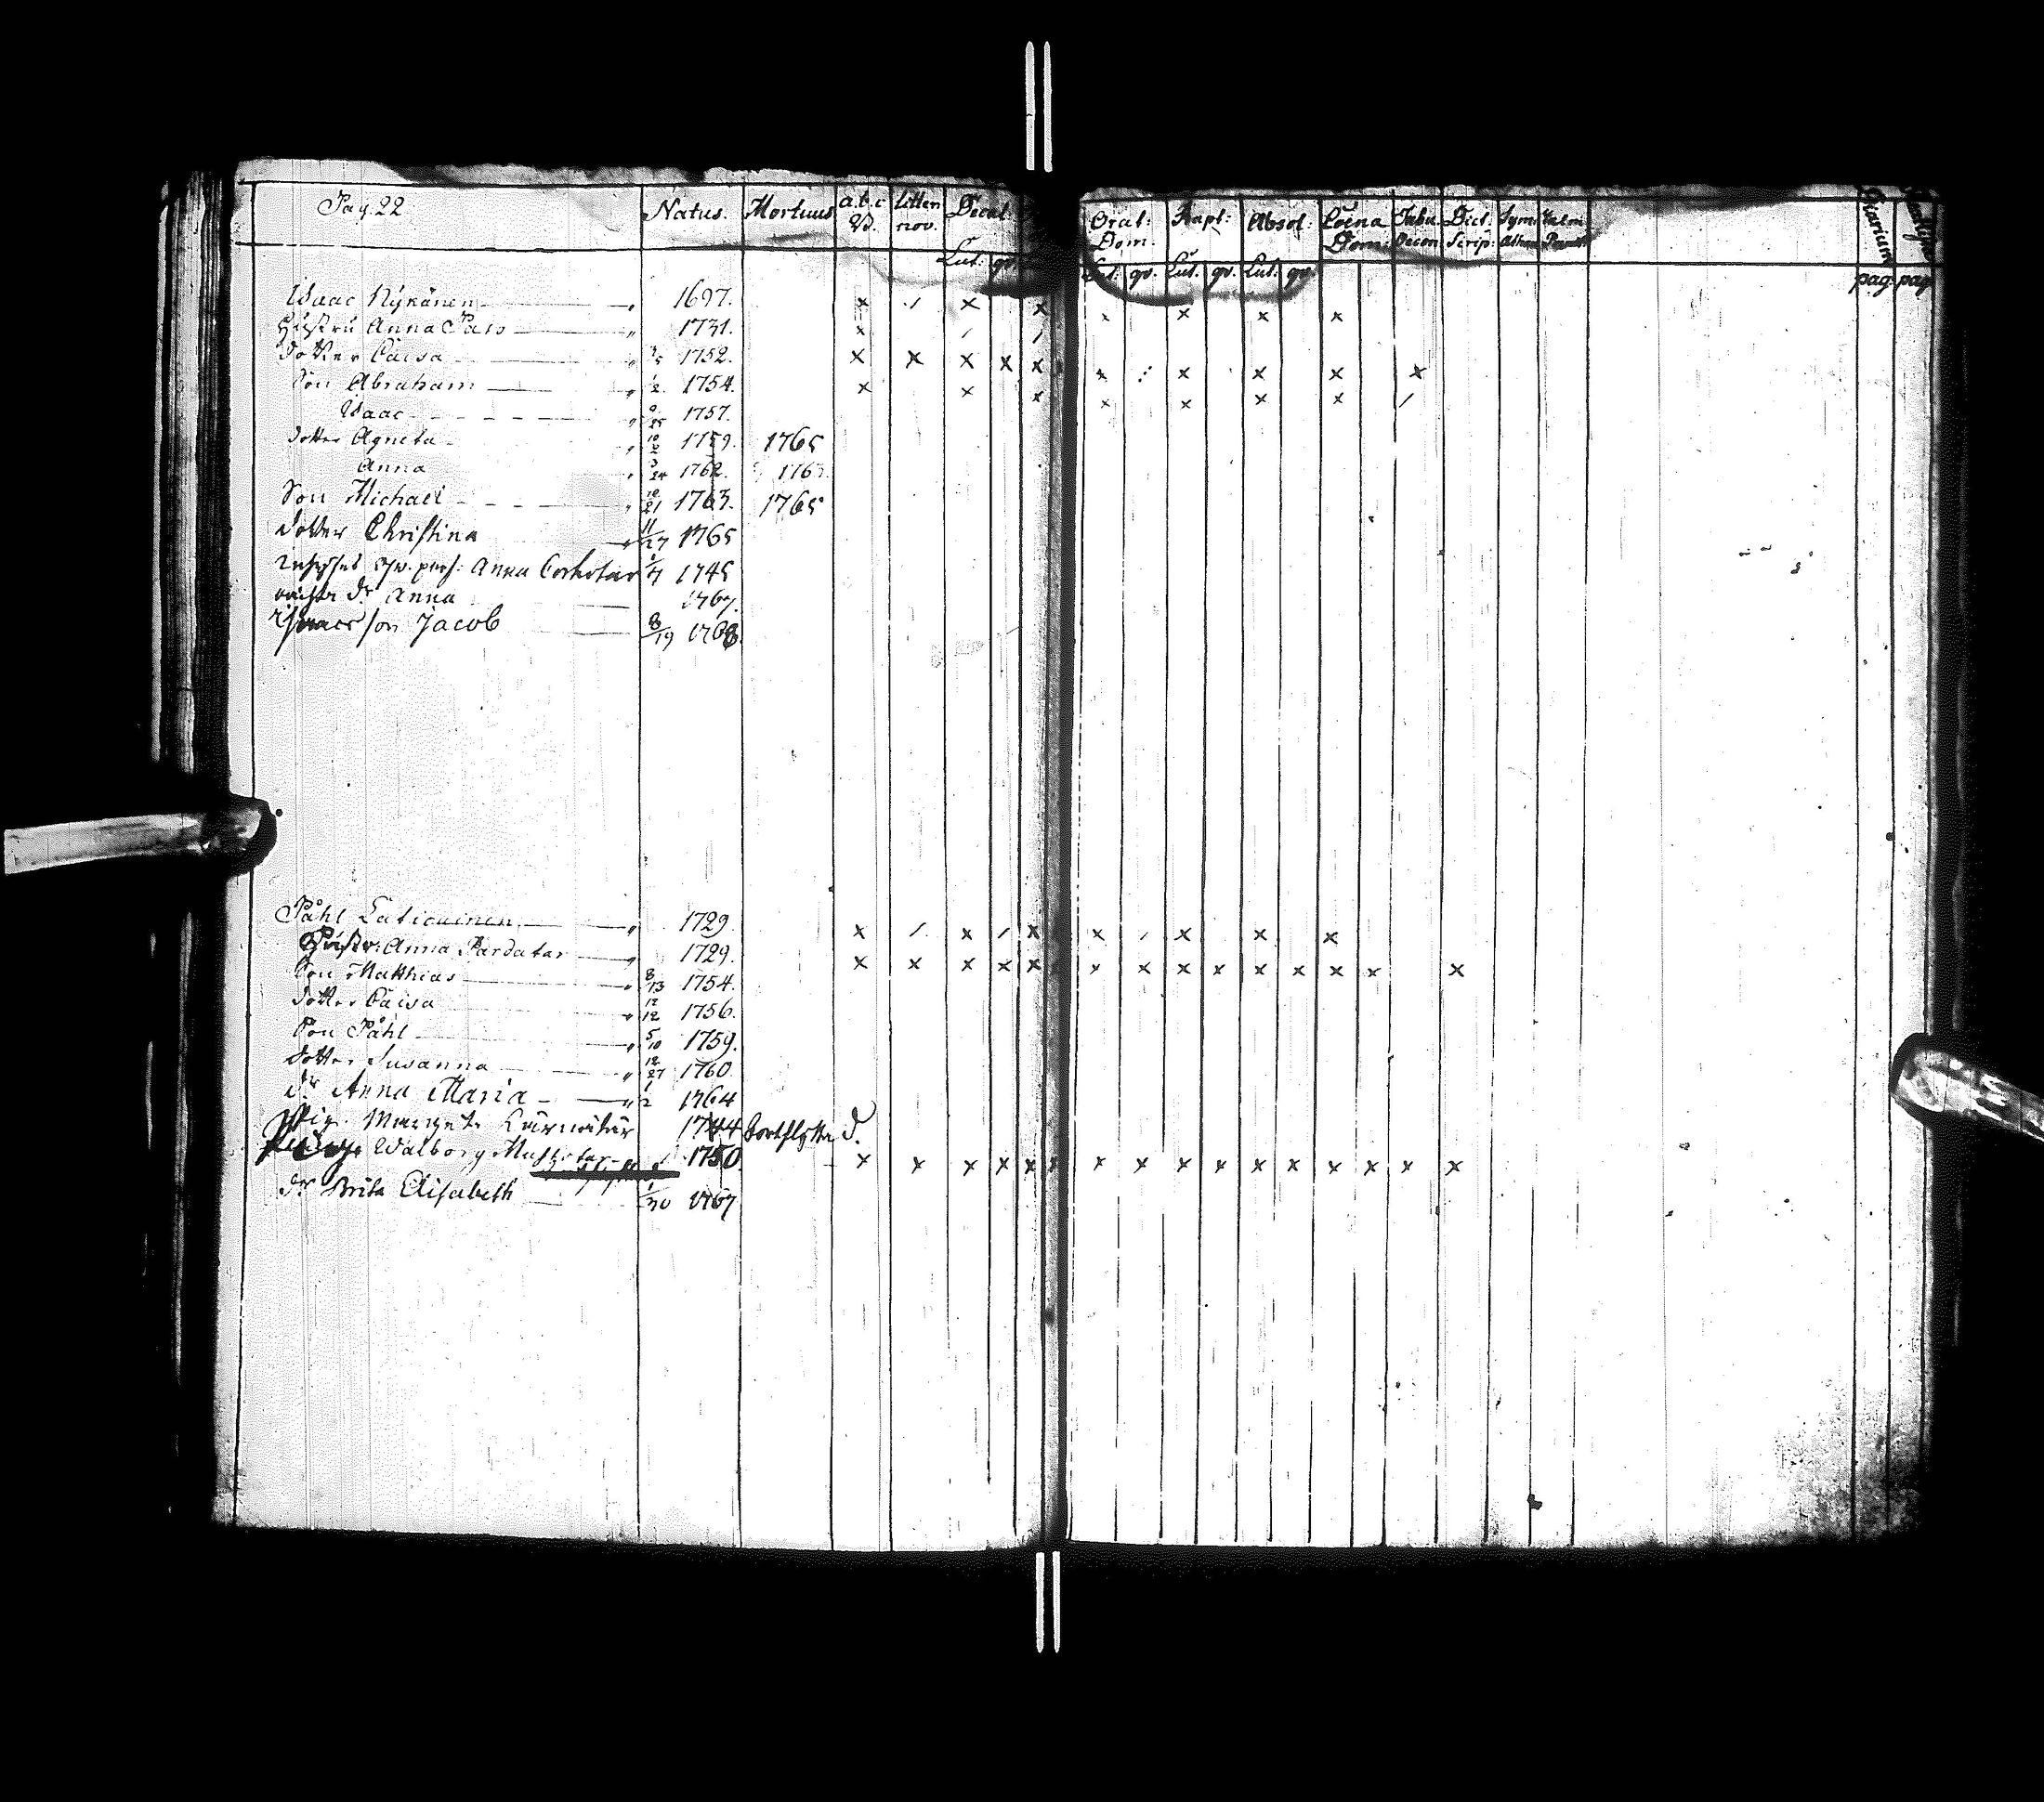 Pag. 22 Natus. Mortuus a.b.c. Litter. nov. Decal: Lut: qv. Orat: Dom. Lut: qv. Bapt: Lut. qv. Absol: Lut. qv. Coena Dom: Tabu Oecon Dict. Scrip: Sym: Athan Diarium pag. pag.
Isaac Nykänen 1697. x / x x x x x x
Hustru Anna 1731. x / /
Dotter Caisa 1752. x x x x x x x x x x
Son Abraham 1754. x x x x x x x /
Isaac 1757.
Dotter Agneta 10/2 1759. 1765
Anna 3/24 1762. 1763.
Son Michael 10/21 1763. 1765
Dotter Christina 11/27 1765
Anna 1745
dr Anna 1767.
son Jacob 8/19 1768
Påhl 1729 x / x / x x / x x x
Hustr: Anna Pardatar 1729. x x x x x x x x x x x x x x
Son Matthias 8/13 1754.
Dotter Caisa 12/12 1756.
Son Påhl 5/10 1759.
Dotter Susanna 12/27 1760
Dr Anna Maria 1/2 1764
Pig. Margeta 1744
Walborg 1750 x x x x x x x x x x x x x x x x
Dr Brita Elisabeth 1/30 1767